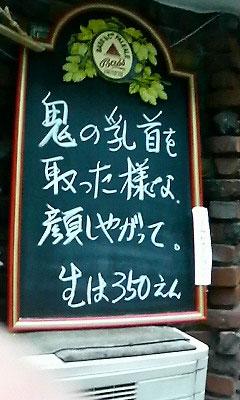 Bass
鬼の乳首を
取った様な、
顔しやがって。
生は350えん